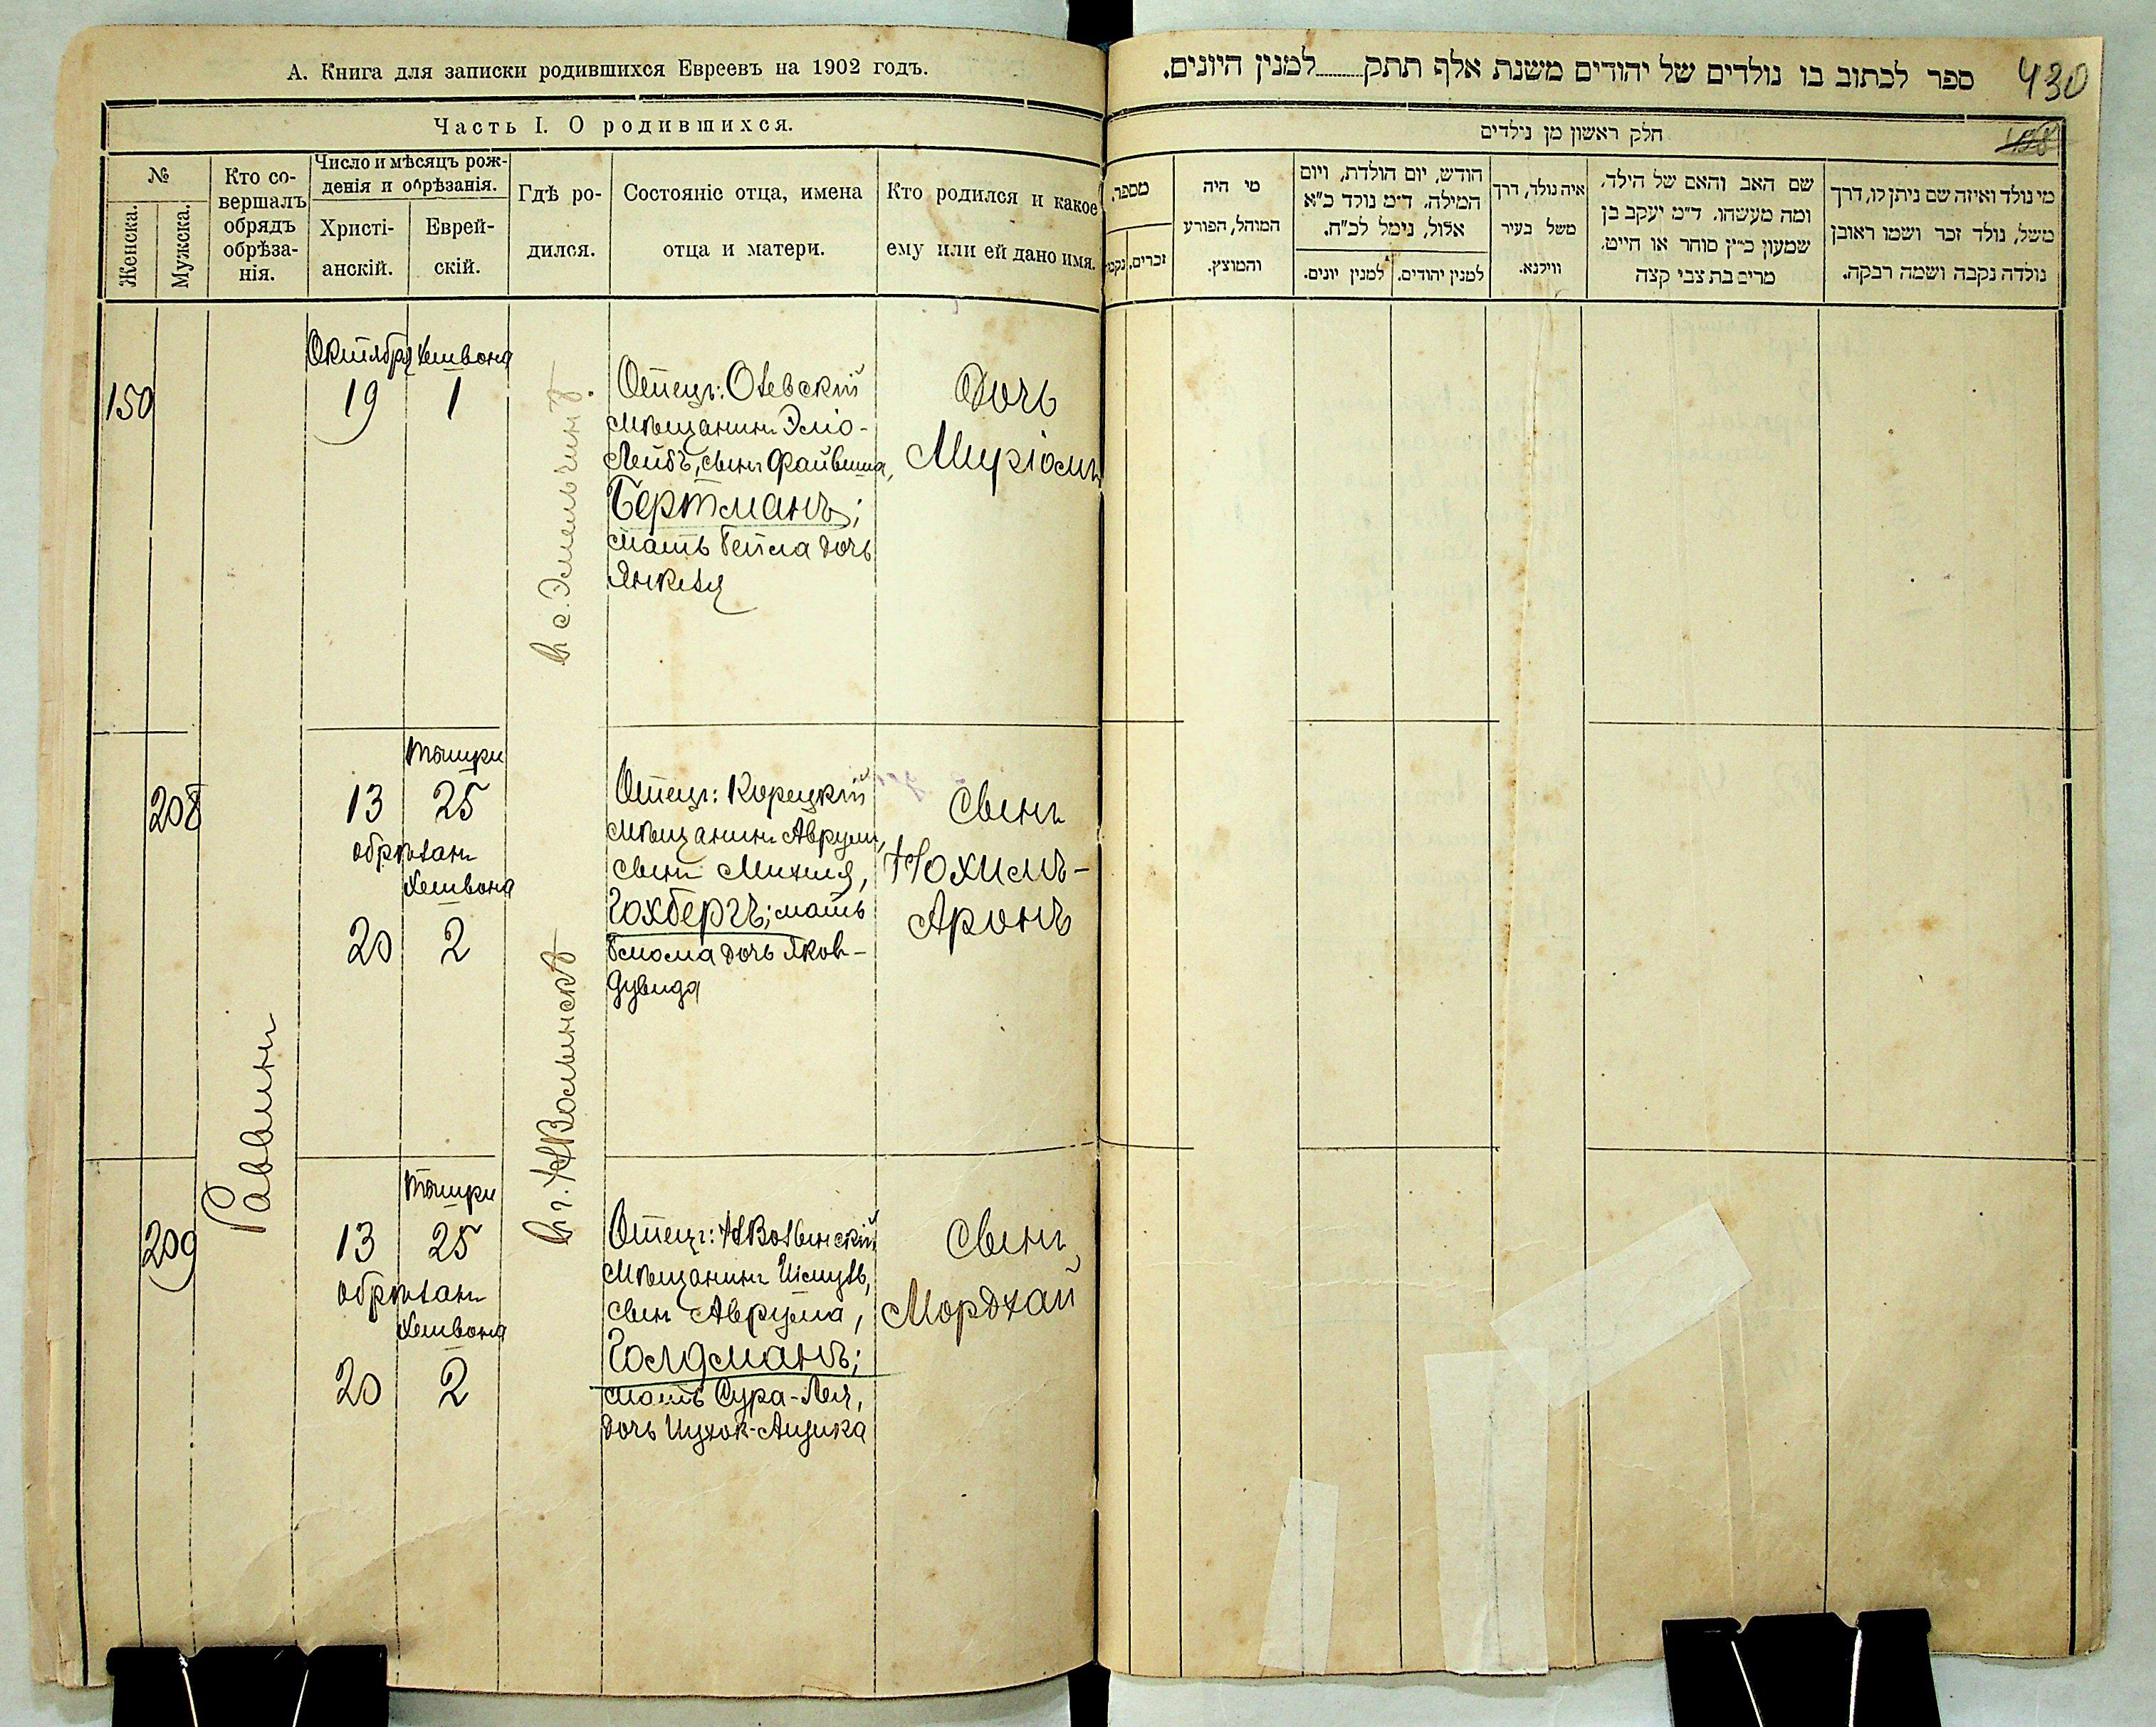 А. Книга для записки родившихся Евреевъ на 1902 годъ.
Часть I. О родившихся.
№
Женска.
Мужска.
Кто со-
вершалъ
обрядъ
обрѣза-
нія.
Число и мѣсяцъ рож-
денія и обрѣзанія.
Христі-
анскій.
Еврей-
скій.
Гдѣ ро-
дился.
Состояніе отца, имена
отца и матери.
Кто родился и какое
ему или ей дано имя.
150
Октября Хешвона
19 1
в с. Эмельчинѣ.
Отецъ: Олевскій
мѣщанинъ Эліо-
Лейбъ, сынъ Файвиша,
Бертманъ;
мать Бейла дочь
Янкеля
Дочь
Миріамъ
208
Раввинъ
Тишри
13 25
обрѣзанъ
Хешвона
20 2
в г. НВолынскѣ
Отецъ: Корецкій
мѣщанинъ Аврумъ,
сынъ Михеля,
Гохбергъ; мать
дочь Яков-
Дувида
Сынъ
Нохимъ-
Аронъ
209
Тишри
13 25
обрѣзанъ
Хешвона
20 2
Отецъ: НВолынскій
мѣщанинъ
сынъ Аврума,
Голдманъ;
мать Сура-Лея,
дочь Ицхок-Айзика
Сынъ
Мордхай
ספר לכתוב בו נולדים של יהודים משנת אלף תתק......למנין היונים.
430
חלק ראשון מן נולדים
מספר.
זכרים.
מי היה
המוהל, הפורע
והמוצץ.
חודש, יום הולדת, ויום
המילה. ד״מ נולד כ״א
אלול, נימל לכ״ח.
למנין יונים.
למנין יהודים.
איה נולד, דרך
משל בעיר
ווילנא.
שם האב והאם של הילד,
ומה מעשהו. ד״מ יעקב בן
שמעון כ״ץ סוחר או חייט,
מרים בת צבי קצה
מי נולד ואיזה שם ניתן לו, דרך
משל, נולד זכר ושמו ראובן
נולדה נקבה ושמה רבקה.